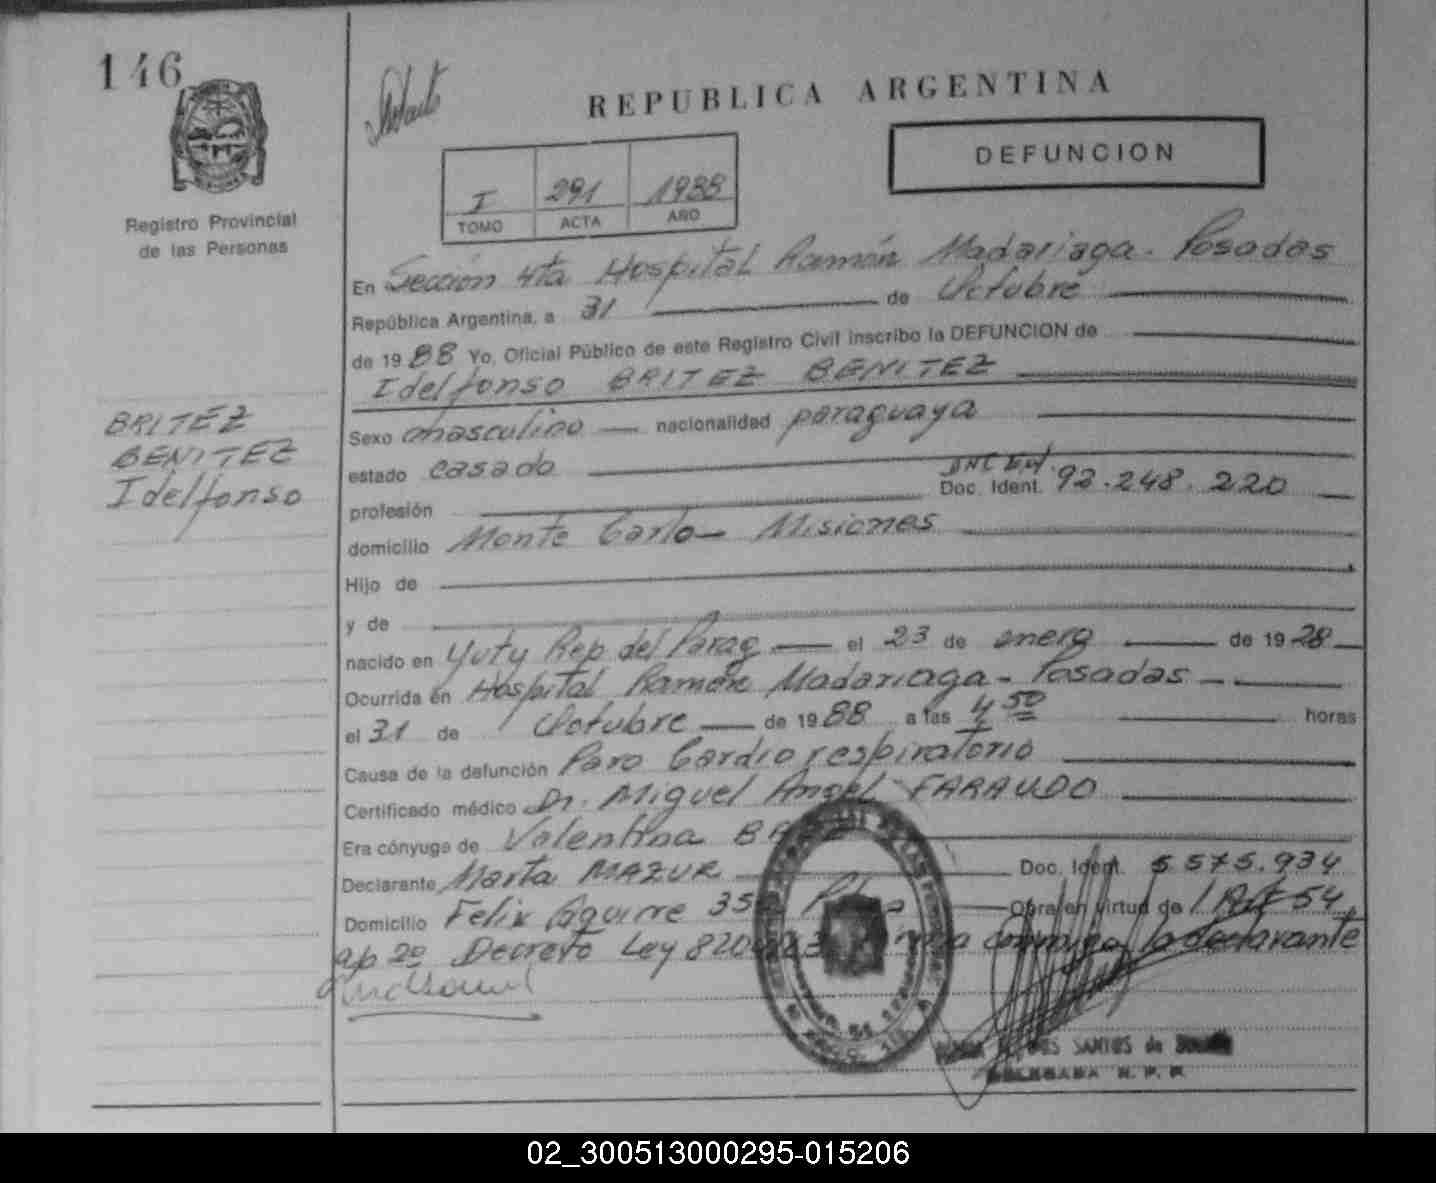 146
REPUBLICA ARGENTINA
DEFUNCION
I 291 1988
TOMO ACTA AÑO
Registro Provincial
de las Personas
En Sección 4ta Hospital Ramón Madariaga - Posadas
República Argentina, a 31 de Octubre
de 1988 Yo, Oficial Público de este Registro Civil inscribo la DEFUNCION de
Idelfonso BRITEZ BENITEZ
BRITEZ
BENITEZ
Idelfonso
Sexo masculino nacionalidad paraguaya
estado casado
profesión Doc. Ident. 92.248.220
domicilio Monte Carlo - Misiones
Hijo de
y de
nacido en Yuty Rep del Parag. el 23 de enero de 1928
Ocurrida en Hospital Ramón Madariaga - Posadas
el 31 de Octubre de 1988 a las 4 50 horas
Causa de la defunción Paro Cardio respiratorio
Certificado médico Dr. Miguel Angel FARAUDO
Era cónyuge de Valentina
Declarante Marta MAZUR Doc. Ident. 5 575.934
Domicilio Felix Aguirre Obra en virtud de 54
ap 2º Decreto Ley conmigo la declarante
SANTOS de
DELEGADA R. P. P.
02_300513000295-015206